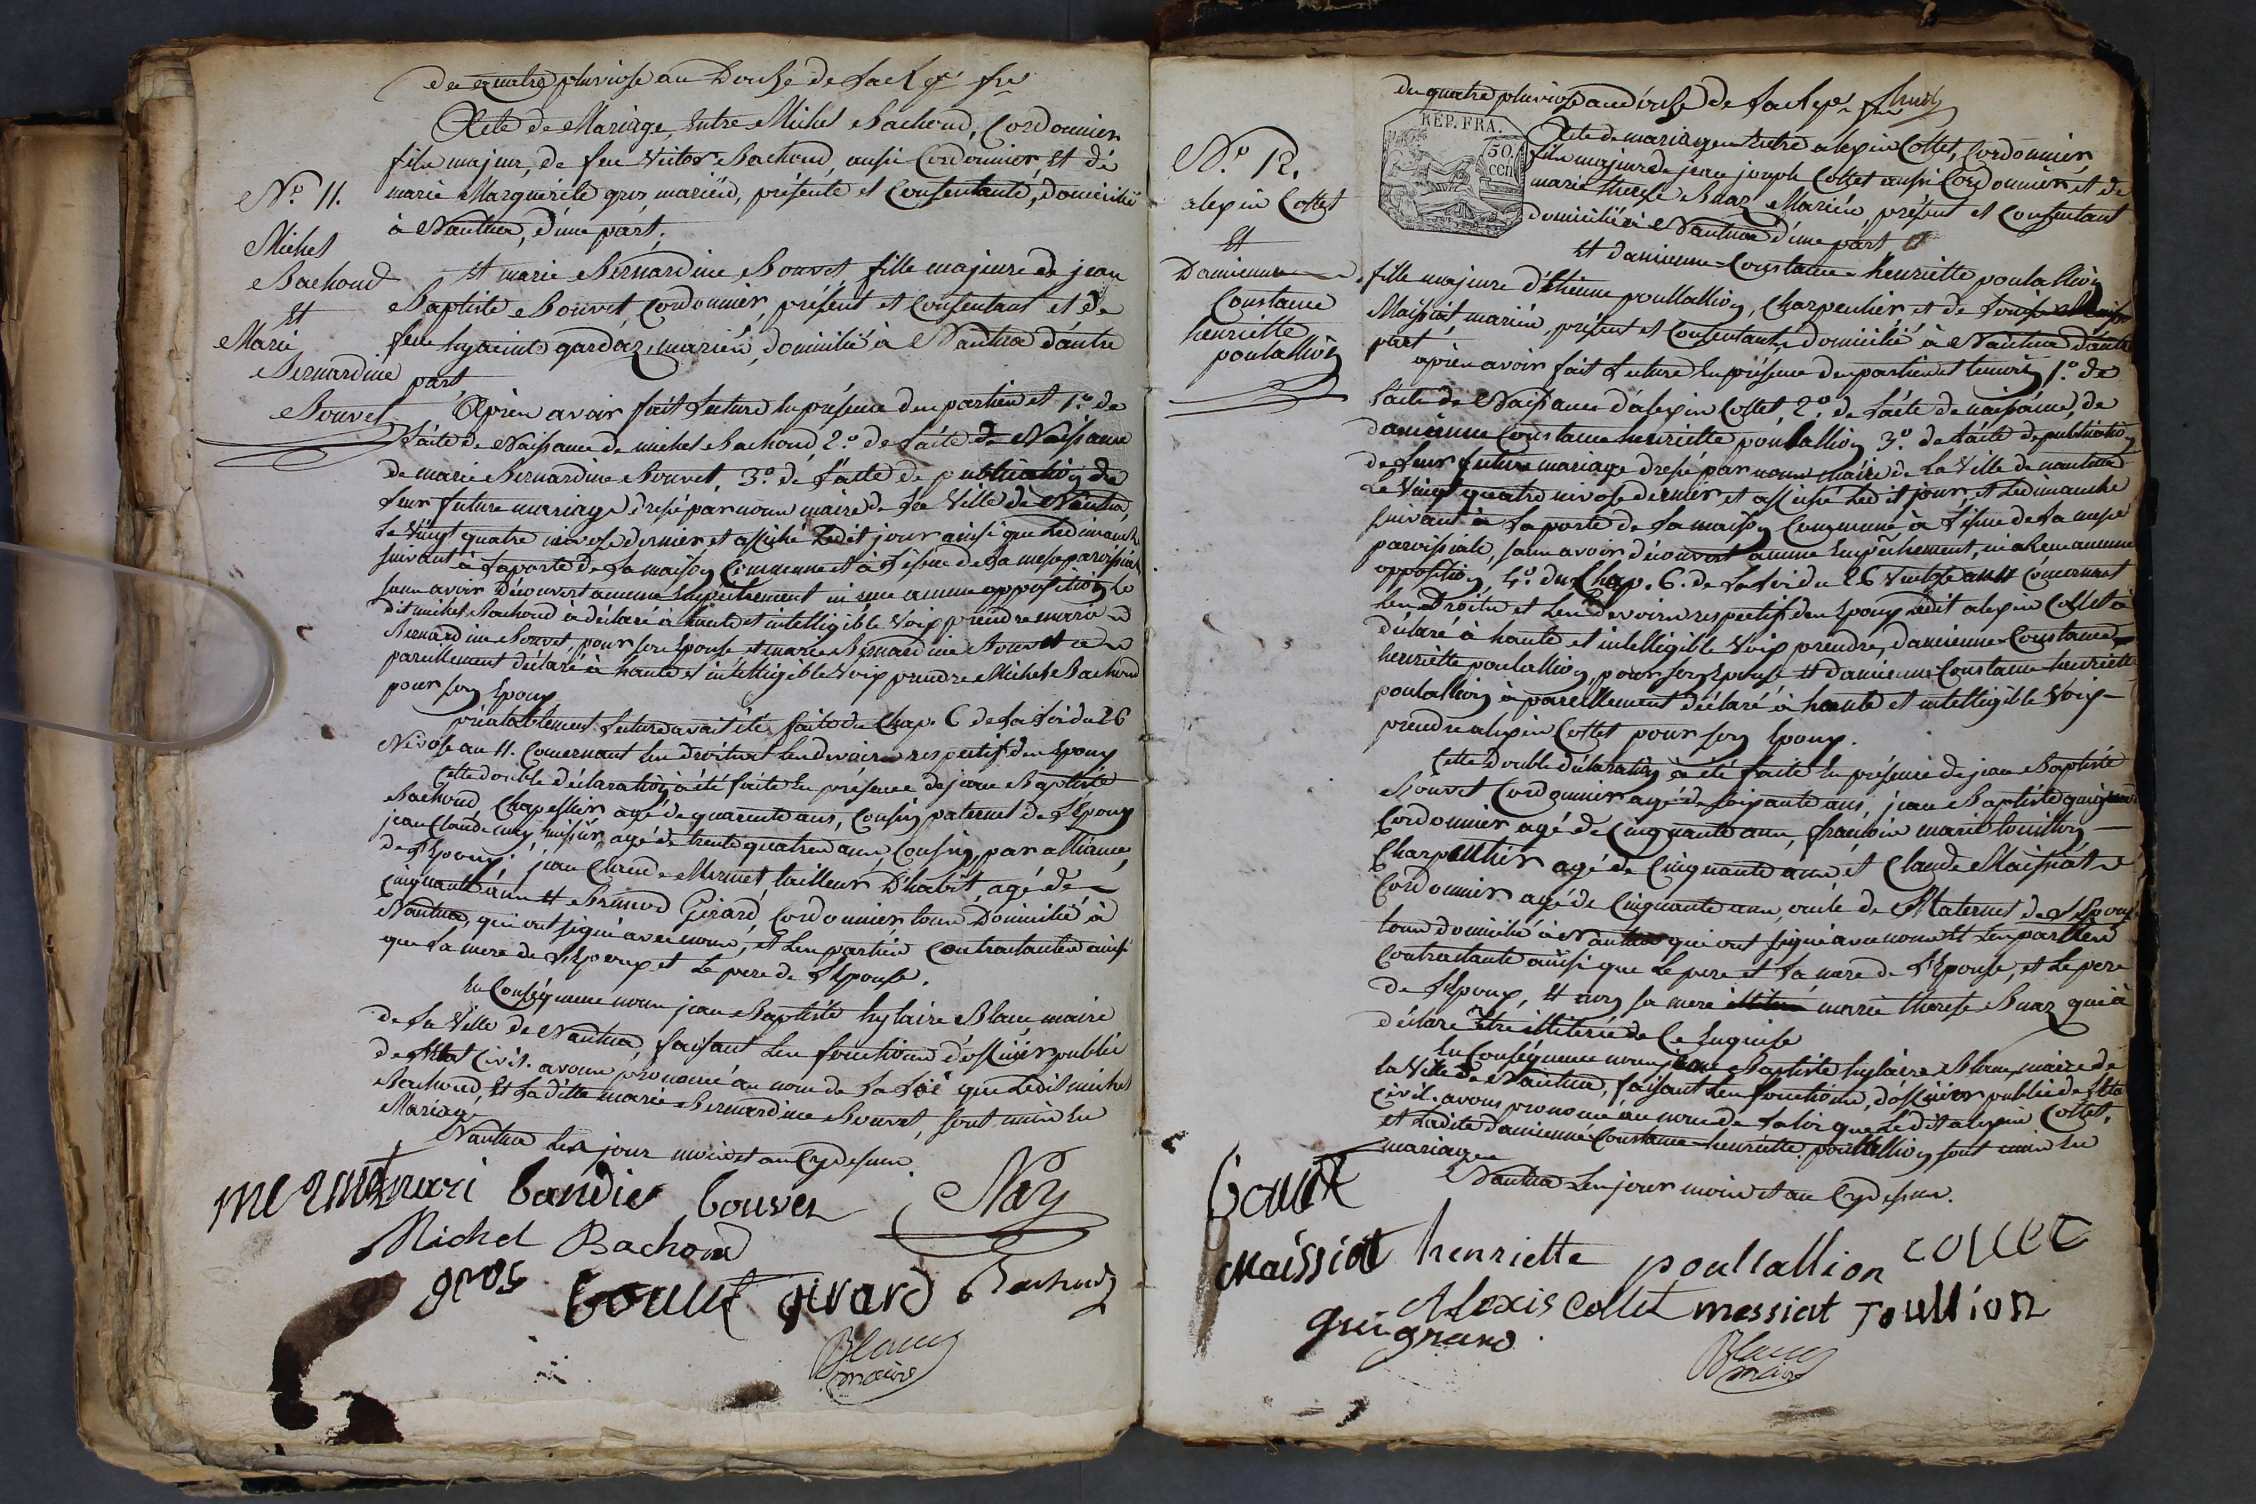 du quatre pluviose an Douze de La Rep. fre
Acte de Mariage, Entre Michel Bachoud, Cordonnier
fils majeur, de feu Victor Bachoud, aussi Cordonnier Et de
marie Marguerite gros mariés, présente et Consentante, domicilié
à Nantua, d'une part,
N.º 11.
Michel
Bachoud
Et
Marie
Bernardine
Bouvet
Et marie Bernardine Bouvet fille majeure de jean
Baptiste Bouvet Cordonnier, présent et Consentant et de
feue hyacinte gardaz, mariés, domiciliée à Nantua d'autre
part
Après avoir fait Lecture En présence des parties et 1.º de
L'acte de Naissance de michel Bachoud, 2.º de L'acte de Naissance
de marie Bernardine Bouvet, 3.º de L'acte de publication de
Leur future mariage dressé par nous maire de La Ville de Nantua,
Le Vingt quatre nivose dernier et affiché Ledit jour ainsi que Ledimanche
suivant à La porte de La maison Commune et à L'issue de La messe paroissiale
sans avoir Découvert aucun Empêchement ni aucune opposition Le
dit michel Bachoud à déclaré à haute et intelligible Voix prendre marie
Bernardine Bouvet, pour son Epouse et marie Bernardine Bouvet a
pareillement déclaré à haute et intelligible Voix prendre Michel Bachoud
pour son Epoux
préalablement Lecture avait été faite du Chap. 6 de La Loi du 26
Nivose an 11. Concernant Les droits et Les devoirs respectifs des Epoux
Cette double déclaration à été faite En présence de jean Baptiste
Bachoud, Chapellier agé de quarante ans, Cousin paternel de L'Epoux
jean Claude huissier, agé de trente quatre ans, Cousin, par alliance
de L'Epoux, jean Claude Mermet, tailleur D'habit, agé de
Cinquante ans Et Girard, Cordonnier, tous Domiciliés à
Nantua, qui ont signé avec nous, et Les parties Contractantes ainsi
que La mere de L'Epoux et Le pere de L'Epouse.
En Conséquence nous jean Baptiste hylaire Blanc maire
de La Ville de Nantua, faisant Les fonctions d'officier public
de L'Etat Civil. avons prononcé au nom de La Loi que Ledit michel
Bachoud, Et Ladite marie Bernardine Bouvet, sont unis En
Mariage
Nantua Les jour mois et an Cydessus
bouvet
Michel Bachoud
gros bouvet girard Bachoud
Blanc
maire
du quatre pluviose an douse de La Rep. fr
RÉP. FRA.
50
cen
N.º 12.
alexis Collet
Et
Damienne
Constance
henriette
poulallion
Acte de mariage Entre alexis Collet, Cordonnier
fils majeur de jean joseph Collet aussi Cordonnier, et de
marie therese Buaz Mariés, présent et Consentant
domiciliés à Nantua d'une part
Et damienne Constance henriette poulallion
fille majeure d'Etienne poullallion, Charpentier, et de
Maissiat mariés, présent et Consentants domicilié à Nantua d'autre
part
après avoir fait Lecture En présence des parties et temoins 1.º de
L'acte de Naissance d'alexis Collet, 2.º de L'acte de naissance, de
damienne Constance henriette poulallion 3.º de L'acte de publication
de Leur future mariage dressé par nous maire de La Ville de nantua
Le Vingt quatre nivose dernier et affiché Ledit jour, et Ledimanche
suivant à La porte de La maison Commune à L'issue de La messe
paroissiale, sans avoir découvert aucune Empêchement, ni aucune
opposition, 4.º du Chap. 6. de La Loi du 26 Ventose an 11 Concernant
Les Droits et Les devoirs respectifs des Epoux Ledit alexis Collet à
déclaré à haute et intelligible Voix prendre, damienne Constance
henriette poulallion, pour son Epouse Et damienne Constance henriette
poulallion à pareillement déclaré à haute et intelligible Voix
prendre alexis Collet pour son Epoux.
Cette Double déclaration à été faite En présence de jean Baptiste
Bouvet Cordonnier agé de soixante ans, jean Baptiste guignard
Cordonnier agé de Cinquante ans, françois marie
Charpentier agé de Cinquante ans et Claude Maissiat
Cordonnier agé de Cinquante ans, oncle de Maternel de L'Epouse
tous domiciliés à Nantua qui ont signé avec nous Et Les parties
Contractante ainsi que Le pere et La mere de L'Epouse, et Le pere
de L'Epoux, Et non sa mere marie therese Buaz qui à
déclaré être illiterée de Ce Enquise
En Conséquence nous jean Baptiste hylaire Blanc, maire de
la Ville de Nantua, faisant Les fonctions, d'officier public de L'Etat
Civil. avons prononcé au nom de La loi que Ledit alexis Collet,
et Ladite damienne Constance henriette poullallion sont unis En
mariage
Nantua Les jour mois et an Cydessus.
bouvet
Maissiat henriette poullallion collet
Alexis Collet messiat
guignard
Blanc
maire